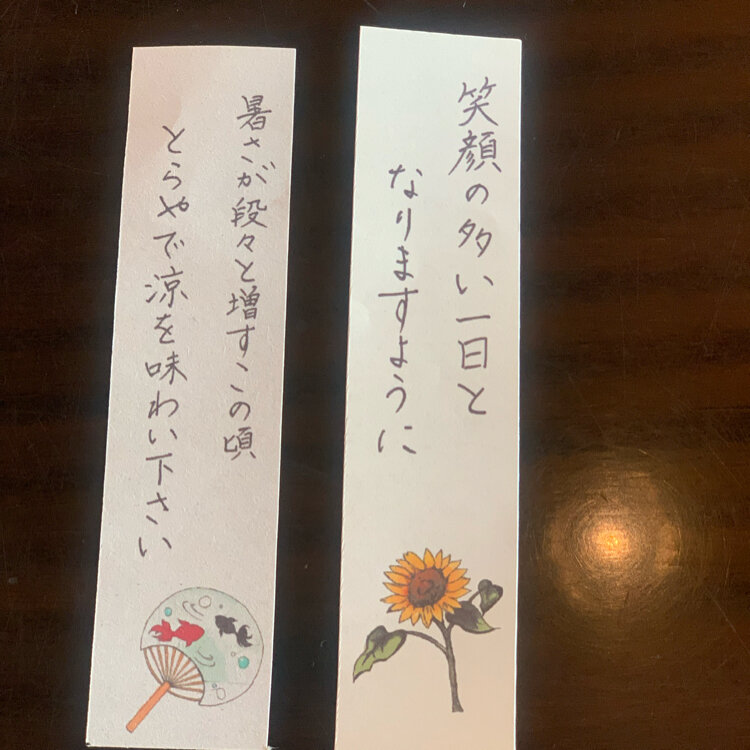 笑顔の多い一日と
なりますように
暑さが段々と増すこの頃
とらやで涼を味わい下さい